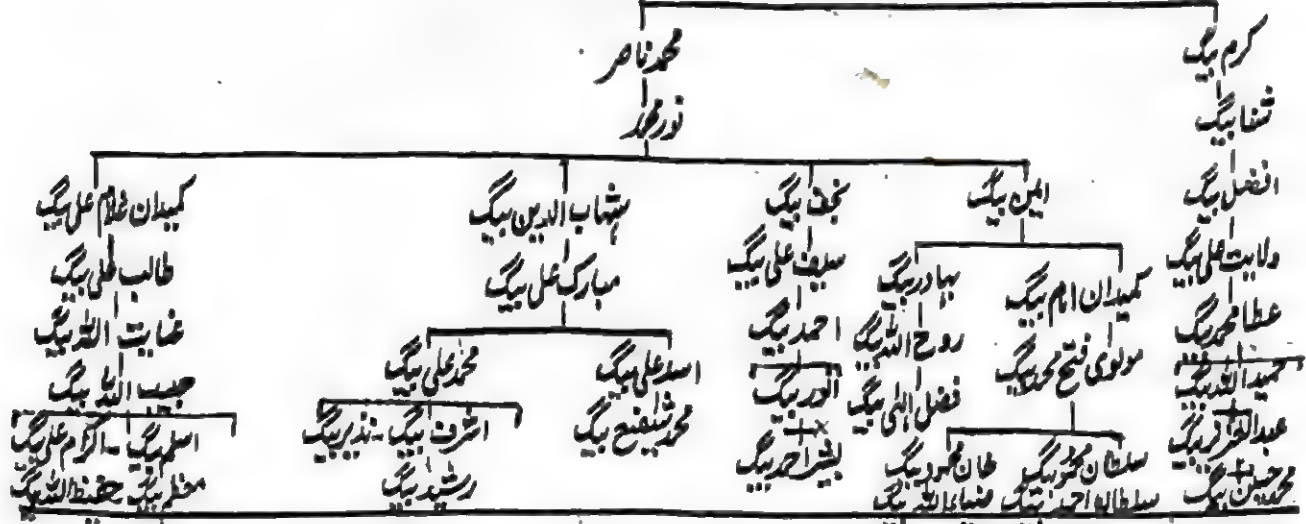 کرم بیگ
ثنا بیگ
افضل بیگ
ولایت علی بیگ
عطا محمد بیگ
حمید اللہ بیگ
عبدالعزیز بیگ
محمد حسین بیگ
محمد ناصر
نور محمد
امین بیگ
کمیدان امام بیگ
مولوی فتح محمد بیگ
سلطان محمود بیگ
سلطان احمد بیگ
بہادر بیگ
روح اللہ بیگ
فضل الہی بیگ
خان محمود بیگ
ضیاء اللہ بیگ
نجف بیگ
سیف علی بیگ
احمد بیگ
انور بیگ
بشیر احمد بیگ
شہاب الدین بیگ
مبارک علی بیگ
اسد علی بیگ
محمد شفیع بیگ
محمد علی بیگ
اشرف بیگ - نذیر بیگ
رشید بیگ
کمیدان غلام علی بیگ
طالب علی بیگ
عنایت اللہ بیگ
حبیب اللہ بیگ
اسلم بیگ - اکرام علی بیگ
معظم بیگ حفیظ اللہ بیگ